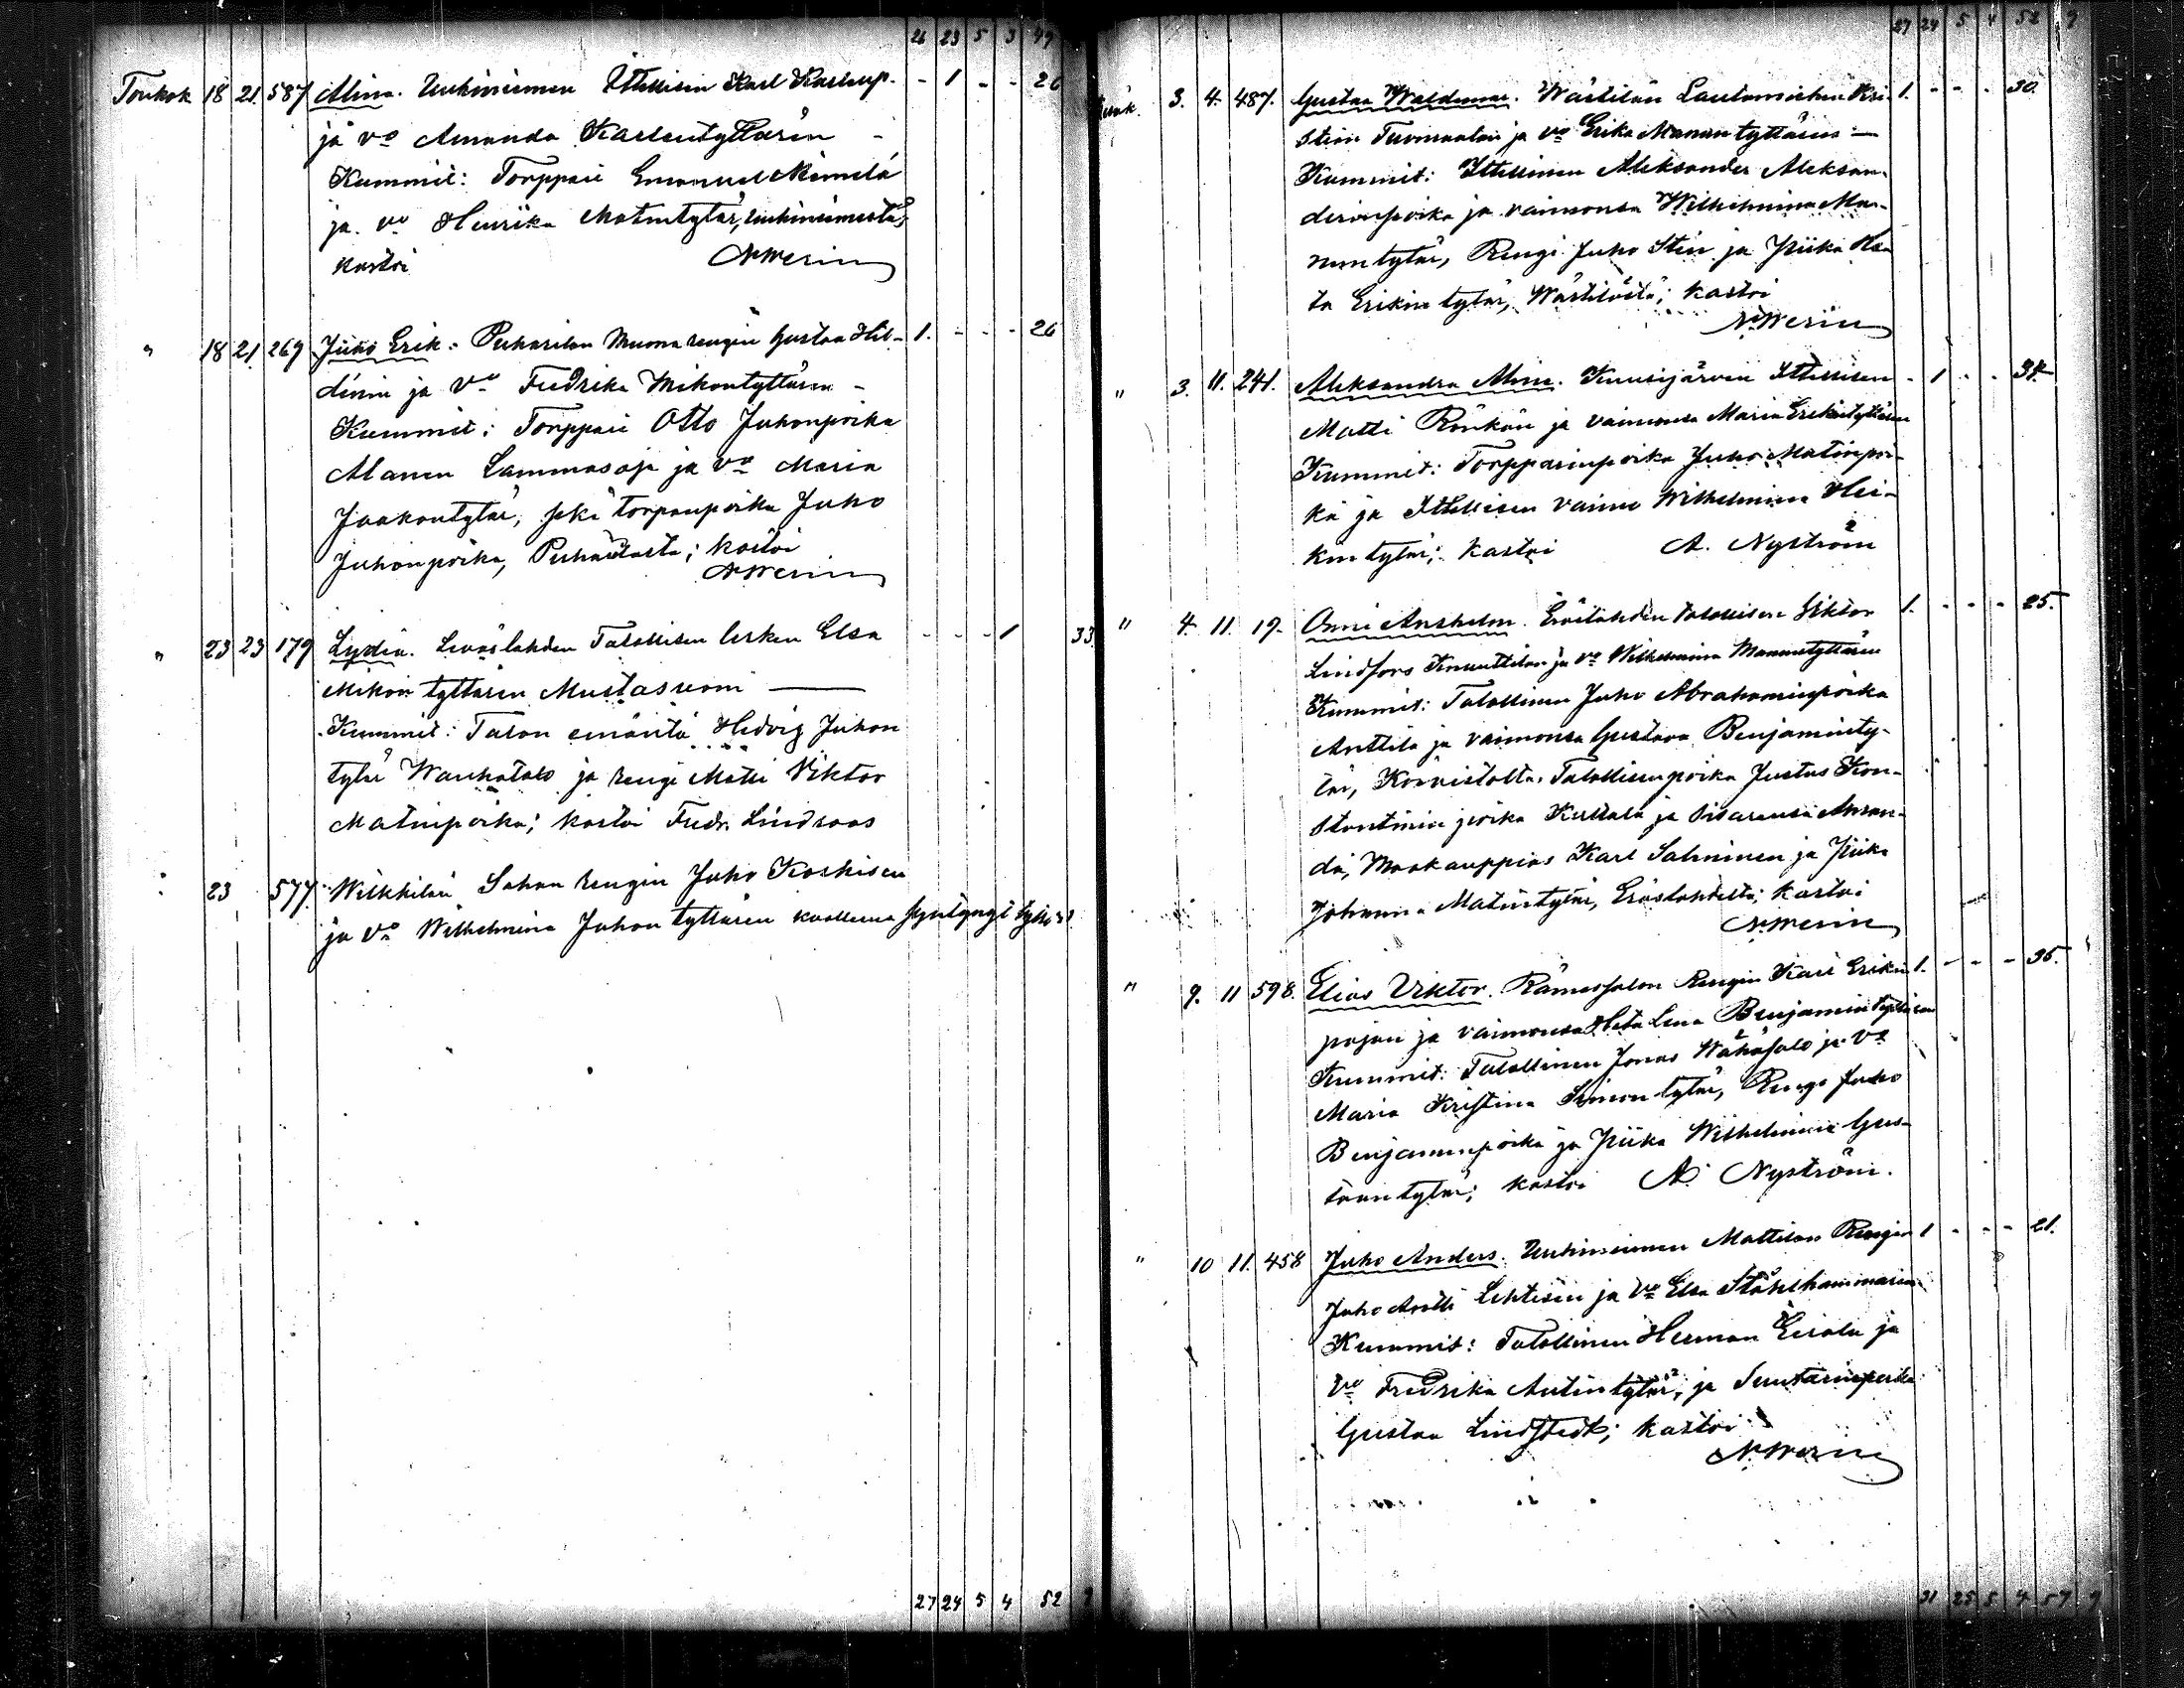 26 23 5 3 49
Toukok 18 21. 587 Alma. Uuhiniemen Ittellisen Karl Karlsup. - 1 - - 26
ja vo Amanda Karlentyttären -
Kummit: Torppari Emanuel
ja vo Henrika Matintytär, Uuhiniemestä;
kastoi N Merin
" 18 21. 269 Juho Erik. Puharilan Muona rengin Gustaa Hil- 1. - - - 26
dénin ja vo Fredrika Mikontyttären -
Kummit: Torppari Otto Juhonpoika
Alanen Lammasoja ja vo Maria
Jaakontytär, sekä torpanpoika Juho
Juhonpoika, kastoi
N Merin
" 23 23 179 Lydia. Leväslahden Talollisen lesken Elsa - - - 1 33
Mikon tyttären Mustasuoni —
Kummit: Talon emäntä Hedvig Juhon
tytär Wanhatalo ja Rengi Matti Viktor
Matinpoika; kastoi Fredr. Lindroos
" 23 577. Wilkkilän Sahan Rengin Juho Koskisen
ja vo Wilhelmina Juhon tyttären kuollena syntynyt tyttö
27 24 5 4 52
27 24 5 4 52
3. 4. 487. Gustaa Waldemar. Wärtilän Lautamiehen Kri- 1. - - - 30.
stian Tuomaalan ja vo Erika Manun tyttären —
Kummit: Ittellinen Aleksander Aleksan-
derinpoika ja vaimonsa Wilhelmina Ma-
nuntytär, Rengi Juho Stén ja Piika
ta Erikin tytär, Wärtilästä; kastoi
N Merin
" 3. 11. 241. Aleksandra Alina. Kuusijärven Ittellisen - 1 - - 34
Matti Rönkän ja vaimonsa Maria Erikintyttären
Kummit: Torpparinpoika Juho Matinpoi-
ka ja Ittellisen vaimo Wilhelmina Hei-
kintytär; kastoi A. Nyström
" 4. 11. 19. Onni Anshelm. Eräslahden talollisen Viktor 1. - - - 25.
Lindfors Knuuttilan ja vo Wilhelmina Manuntyttären
Kummit: Talollinen Juho Abrahaminpoika
Anttila ja vaimonsa Gustava Benjaminty-
tär, Koivistolta, Talollisenpoika Justus Kon-
stantinin poika Kuttala ja sisarensa Aman-
da, Maakauppias Karl Salminen ja Piika
Johanna Matintytär, Eräslahdelta; kastoi
N Merin
" 9. 11 598. Elias Viktor. Rämessalon Rengin Karl Erikin 1. - - - 35.
pojan ja vaimonsa Heta Lena Benjamintyttären
Kummit: Talollinen Jonas Wähäsalo ja vo
Maria Kristina Simon tytär, Rengi Juho
Benjaminpoika ja Piika Wilhelmiina Gus-
taantytär; kastoi A. Nyström.
" 10 11. 458 Juho Anders. Uuhiniemen Mattilan Rengin 1 - - - 21.
Juho Antti Lehtisen ja vo Elsa Stålhammarin
Kummit: Talollinen Herman Eerola ja
vo Fredrika Antintytär, ja Suutarinpoika
Gustaa Lindstedt; kastoi
N Merin
31 25 5 4 57 9